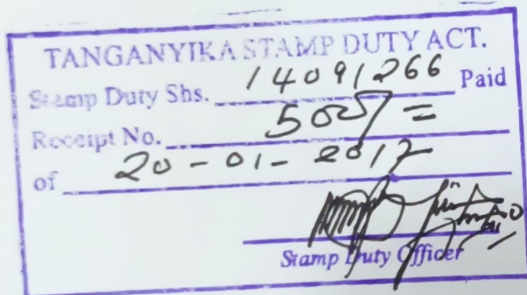 TANGANYIKA STAMP DUTY ACT.
Stamp Duty Shs. 14091266 Paid
Receipt No. 500/=
of 20-01-2017
Stamp Duty Officer